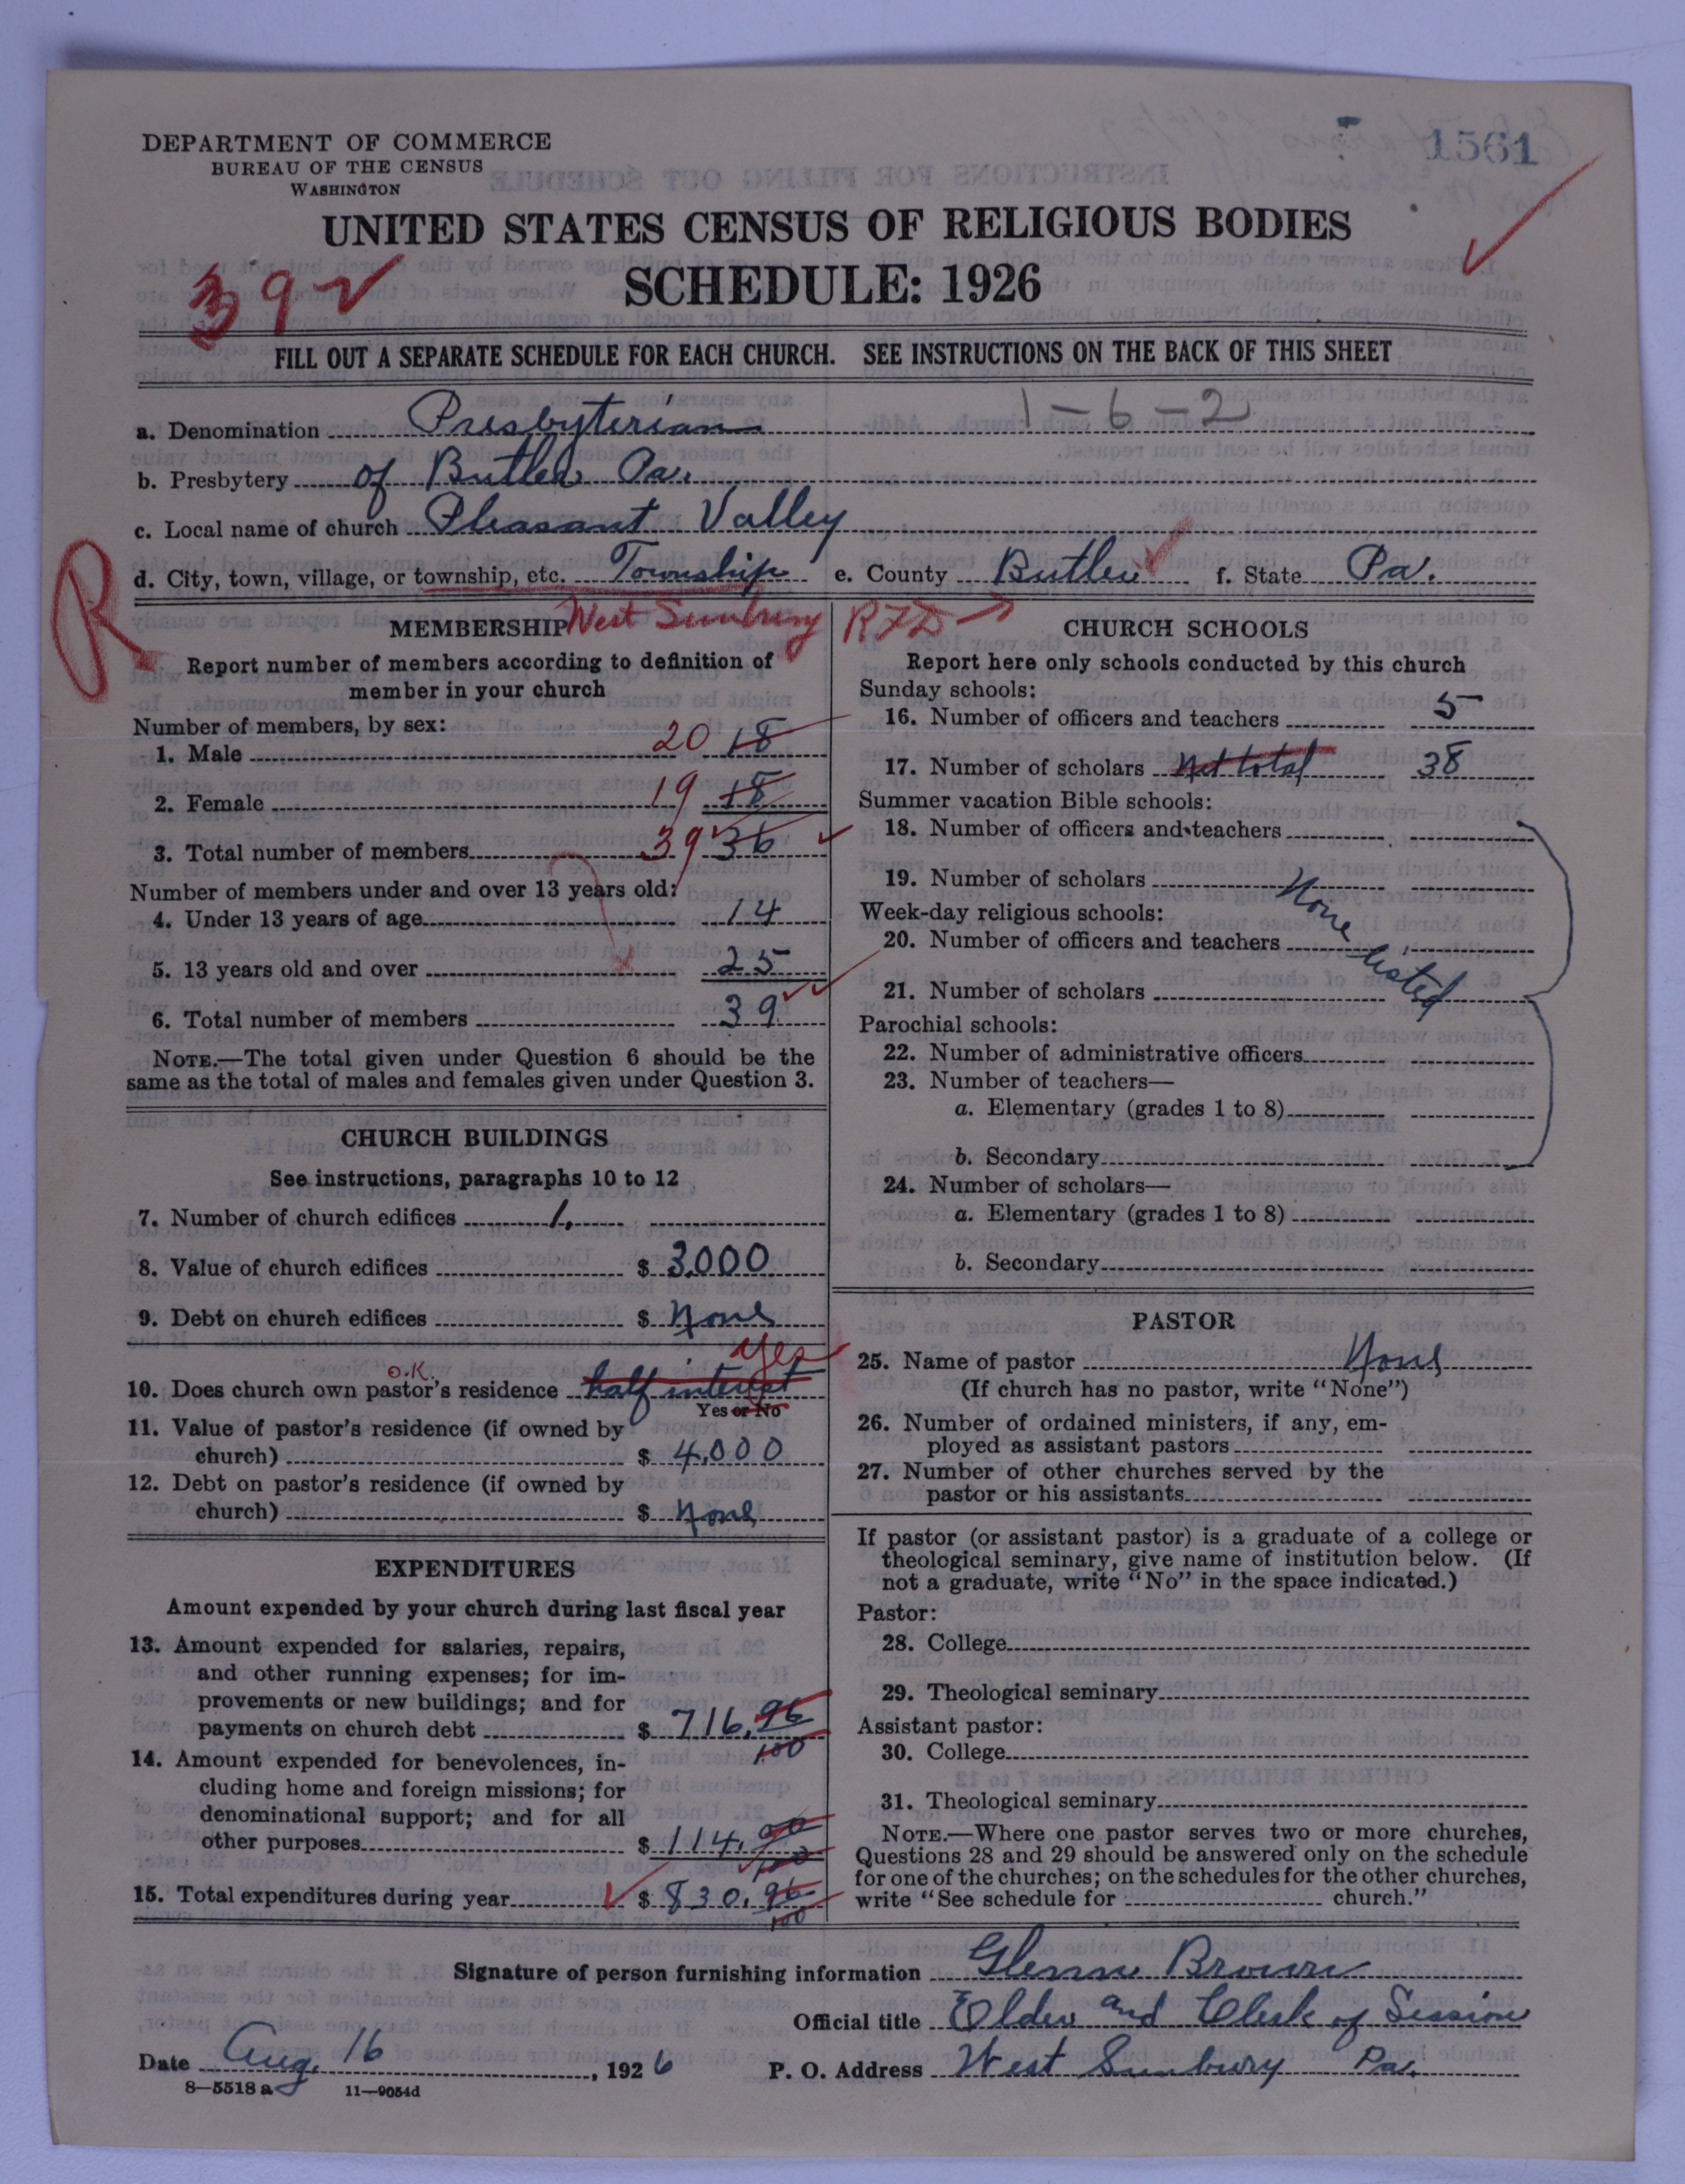 1561
DEPARTMENT OF COMMERCE
BUREAU OF THE CENSUS
WASHINGTON
UNITED STATES CENSUS OF RELIGIOUS BODIES
SCHEDULE: 1926
392
FILL OUT A SEPARATE SCHEDULE FOR EACH CHURCH. SEE INSTRUCTIONS ON THE BACK OF THIS SHEET
1-6-2
a. Denomination Presbyterian
b. Presbytery of Butler Pa.
c. Local name of church Pleasant Valley
d. City, town, village, or township, etc. Township e. County Butler f. State Pa.
R
West Sunbury RFD
MEMBERSHIP
Report number of members according to definition of
member in your church
Number of members, by sex:
1. Male 20 18
2. Female 19 18
3. Total number of members 39 36
Number of members under and over 13 years old:
4. Under 13 years of age 14
5. 13 years old and over 25
6. Total number of members 39
NOTE.—The total given under Question 6 should be the
same as the total of males and females given under Question 3.
CHURCH BUILDINGS
See instructions, paragraphs 10 to 12
7. Number of church edifices 1.
8. Value of church edifices $ 3,000
9. Debt on church edifices $ None
yes
O.K.
10. Does church own pastor's residence half interest
Yes or No
11. Value of pastor's residence (if owned by
church) $ 4,000
12. Debt on pastor's residence (if owned by
church) $ None
EXPENDITURES
Amount expended by your church during last fiscal year
13. Amount expended for salaries, repairs,
and other running expenses; for im-
provements or new buildings; and for
payments on church debt $ 716.96/100
14. Amount expended for benevolences, in-
cluding home and foreign missions; for
denominational support; and for all
other purposes $ 114.00/100
15. Total expenditures during year $ 830.96/100
CHURCH SCHOOLS
Report here only schools conducted by this church
Sunday schools:
16. Number of officers and teachers 5
17. Number of scholars Net total 38
Summer vacation Bible schools:
18. Number of officers and teachers
19. Number of scholars None
Week-day religious schools:
20. Number of officers and teachers listed
21. Number of scholars
Parochial schools:
22. Number of administrative officers
23. Number of teachers—
a. Elementary (grades 1 to 8)
b. Secondary
24. Number of scholars—
a. Elementary (grades 1 to 8)
b. Secondary
PASTOR
25. Name of pastor None
(If church has no pastor, write "None")
26. Number of ordained ministers, if any, em-
ployed as assistant pastors
27. Number of other churches served by the
pastor or his assistants
If pastor (or assistant pastor) is a graduate of a college or
theological seminary, give name of institution below. (If
not a graduate, write "No" in the space indicated.)
Pastor:
28. College
29. Theological seminary
Assistant pastor:
30. College
31. Theological seminary
NOTE.—Where one pastor serves two or more churches,
Questions 28 and 29 should be answered only on the schedule
for one of the churches; on the schedules for the other churches,
write "See schedule for church."
Signature of person furnishing information Glenn Brown
Official title Elder and Clerk of Session
Date Aug. 16, 1926 P. O. Address West Sunbury Pa.
8—5518 a 11—9054d